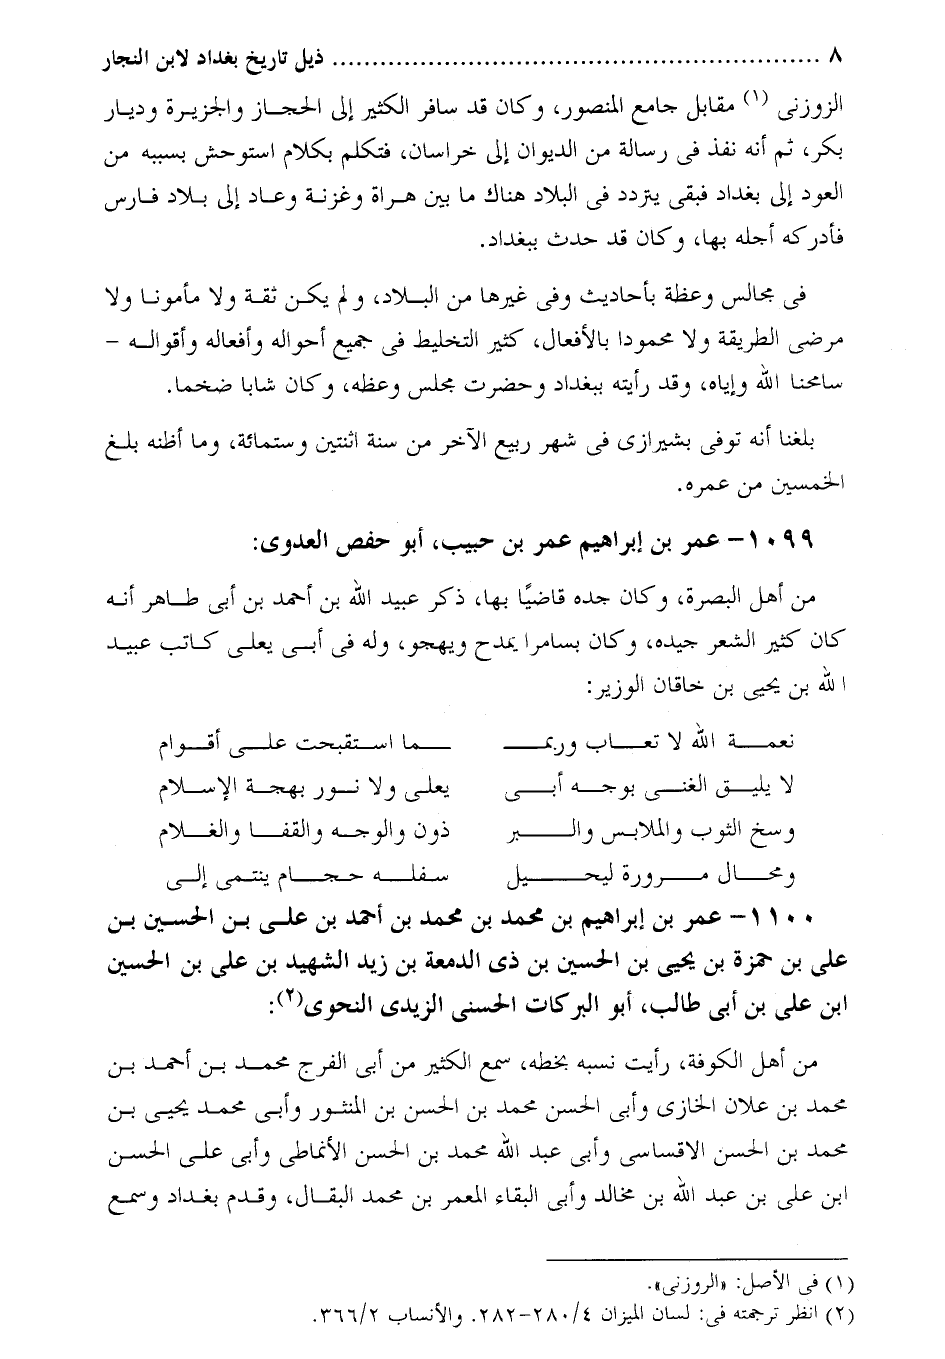 ٨ ........................................................... ذيل تاريخ بغداد لابن النجار
الزوزنى (١) مقابل جامع المنصور، وكان قد سافر الكثير إلى الحجاز والجزيرة وديار
بكر، ثم أنه نفذ فى رسالة من الديوان إلى خراسان، فتكلم بكلام استوحش بسببه من
العود إلى بغداد فبقى يتردد فى البلاد هناك ما بين هراة وغزنة وعاد إلى بلاد فارس
فأدركه أجله بها، وكان قد حدث ببغداد.
فى مجالس وعظة بأحاديث وفى غيرها من البلاد، ولم يكن ثقة ولا مأمونا ولا
مرضى الطريقة ولا محمودا بالأفعال، كثير التخليط فى جميع أحواله وأفعاله وأقواله -
سامحنا الله وإياه، وقد رأيته ببغداد وحضرت مجلس وعظه، وكان شابا ضخما.
بلغنا أنه توفى بشيرازى فى شهر ربيع الآخر من سنة اثنتين وستمائة، وما أظنه بلغ
الخمسين من عمره.
١٠٩٩- عمر بن إبراهيم عمر بن حبيب، أبو حفص العدوى:
من أهل البصرة، وكان جده قاضيًا بها، ذكر عبيد الله بن أحمد بن أبى طاهر أنه
كان كثير الشعر جيده، وكان بسامرا يمدح ويهجو، وله فى أبى يعلى كاتب عبيد
الله بن يحيى بن خاقان الوزير:
نعمة الله لا تعاب وربمـ ـما استقبحت على أقوام
لا يليق الغنى بوجه أبى يعلى ولا نور بهجة الإسلام
وسخ الثوب والملابس والبر ذون والوجه والقفا والغلام
ومحال مرورة ليحيل سفله حجام ينتمى إلى
١١٠٠- عمر بن إبراهيم بن محمد بن محمد بن أحمد بن على بن الحسين بن
على بن حمزة بن يحيى بن الحسين بن ذى الدمعة بن زيد الشهيد بن على بن الحسين
ابن على بن أبى طالب، أبو البركات الحسنى الزيدى النحوى(٢):
من أهل الكوفة، رأيت نسبه بخطه، سمع الكثير من أبى الفرج محمد بن أحمد بن
محمد بن علان الخازى وأبى الحسن محمد بن الحسن بن المنثور وأبى محمد يحيى بن
محمد بن الحسن الاقساسى وأبى عبد الله محمد بن الحسن الأنماطى وأبى على الحسن
ابن على بن عبد الله بن مخالد وأبى البقاء المعمر بن محمد البقال، وقدم بغداد وسمع
(١) فى الأصل: «الروزنى».
(٢) انظر ترجمته فى: لسان الميزان ٤/ ٢٨٠-٢٨٢. والأنساب ٣٦٦/٢.